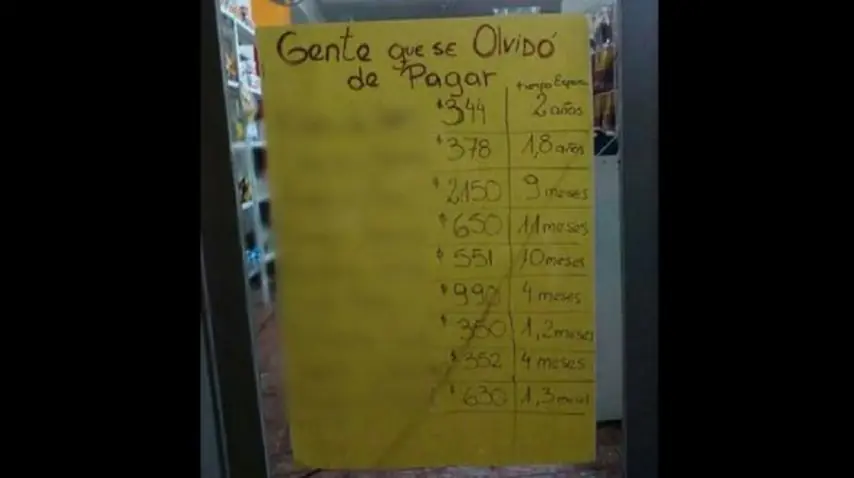 Gente que se Olvidó
de Pagar
tiempo Espera
$344 2 años
$378 1,8 años
$2150 9 meses
$650 11 meses
$551 10 meses
$990 4 meses
$350 1,2 meses
$352 4 meses
$630 1,3